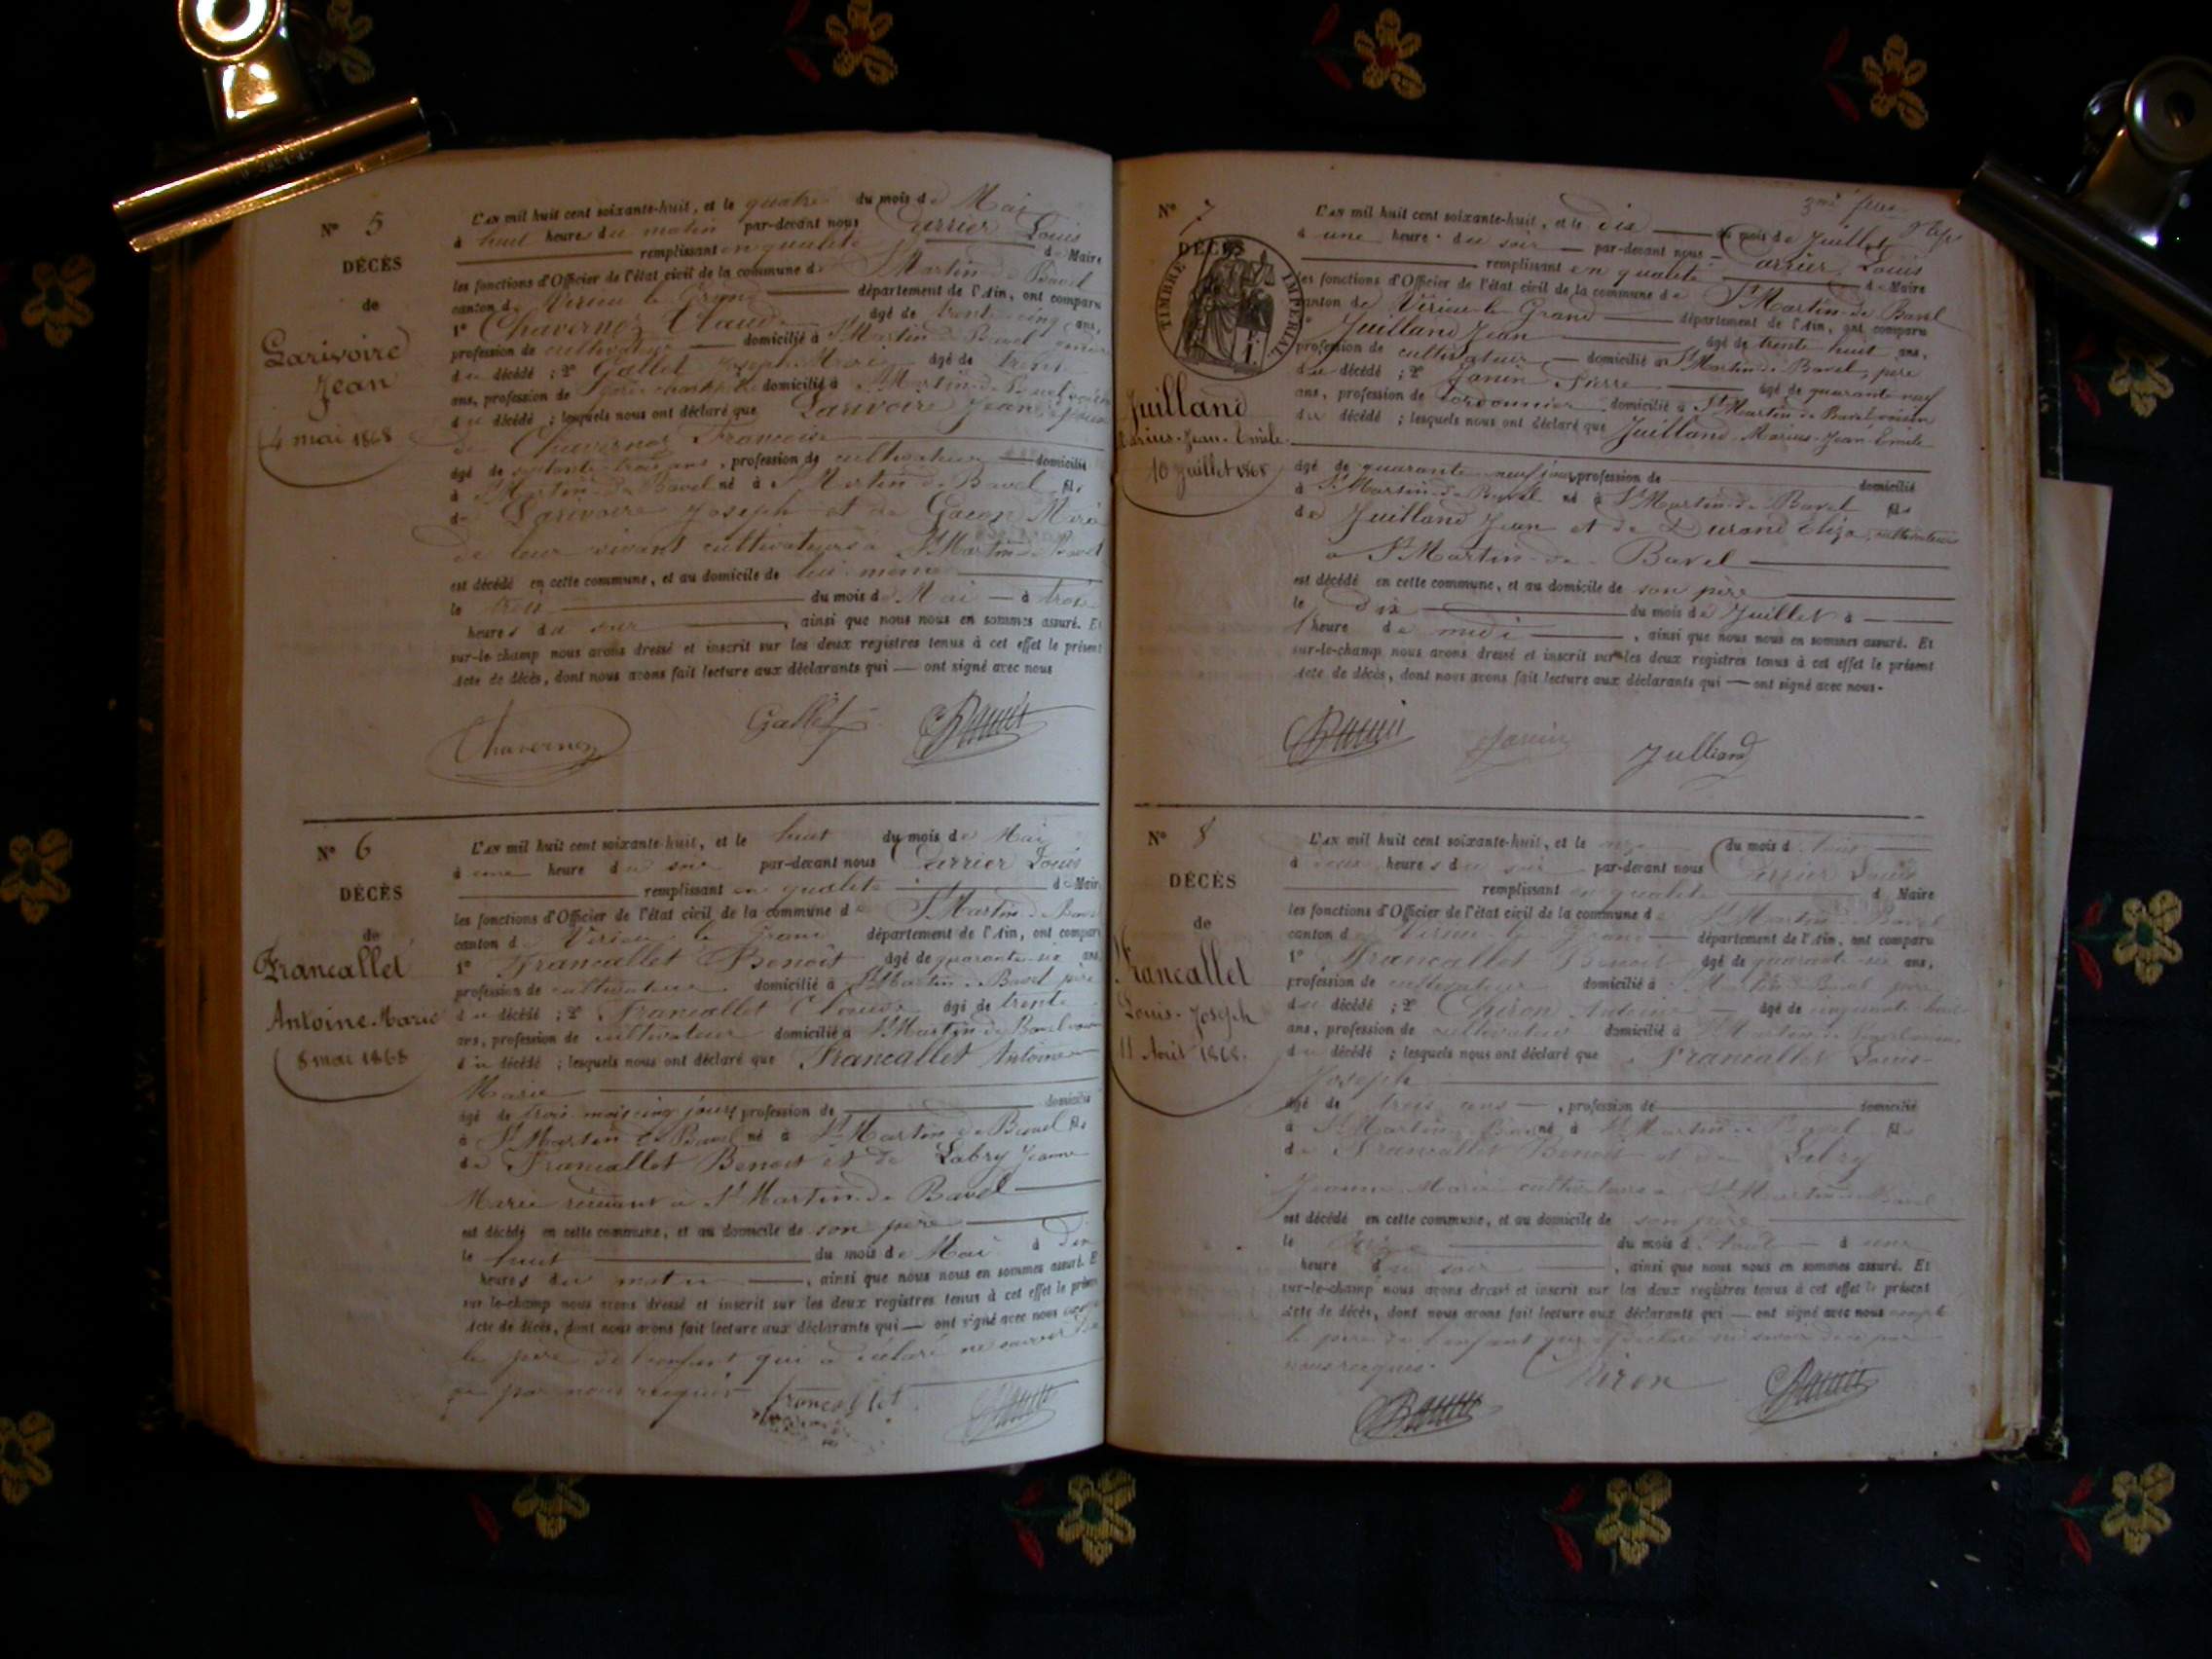 N° 5
DÉCÈS
de
Larivoire
Jean
4 mai 1868
L'an mil huit cent soixante-huit, et le quatre du mois de Mai
à huit heures du matin par-devant nous Carrier Louis
remplissant en qualité de Maire
les fonctions d'Officier de l'état civil de la commune de St Martin de Bavel
canton de Virieu le Grand département de l'Ain, ont comparu
1° Chavernoz Claude âgé de trente cinq ans,
profession de cultivateur domicilié à St Martin de Bavel
du décédé ; 2° Gallet Joseph âgé de trente
ans, profession de domicilié à St Martin de Bavel voisin
du décédé ; lesquels nous ont déclaré que Larivoire Jean époux
de Chavernoz Françoise
âgé de soixante-trois ans, profession de cultivateur domicilié
à St Martin de Bavel né à St Martin de Bavel fils
de Larivoire Joseph et de Gacon Marie
de leur vivant cultivateurs à St Martin de Bavel
est décédé en cette commune, et au domicile de lui-même
le trois du mois de Mai à trois
heures du soir, ainsi que nous nous en sommes assuré. Et
sur-le-champ nous avons dressé et inscrit sur les deux registres tenus à cet effet le présent
Acte de décès, dont nous avons fait lecture aux déclarants qui — ont signé avec nous
Chavernoz Gallet
N° 6
DÉCÈS
de
Francallet
Antoine-Marie
8 mai 1868
L'an mil huit cent soixante-huit, et le huit du mois de Mai
à une heure du soir par-devant nous Carrier Louis
remplissant en qualité de Maire
les fonctions d'Officier de l'état civil de la commune de St Martin de Bavel
canton de Virieu le Grand département de l'Ain, ont comparu
1° Francallet Benoit âgé de quarante-six ans,
profession de cultivateur domicilié à St Martin de Bavel père
du décédé ; 2° Francallet Claude âgé de trente
ans, profession de cultivateur domicilié à St Martin de Bavel voisin
du décédé ; lesquels nous ont déclaré que Francallet Antoine
Marie
âgé de trois mois cinq jours, profession de domicilié
à St Martin de Bavel né à St Martin de Bavel fils
de Francallet Benoit et de Labry Jeanne
Marie résidant à St Martin de Bavel
est décédé en cette commune, et au domicile de son père
le huit du mois de Mai à dix
heures du matin, ainsi que nous nous en sommes assuré. Et
sur-le-champ nous avons dressé et inscrit sur les deux registres tenus à cet effet le présent
Acte de décès, dont nous avons fait lecture aux déclarants qui — ont signé avec nous excepté
le père de l'enfant qui a déclaré ne savoir
de par nous requis
francallet
N° 7
DÉCÈS
TIMBRE IMPÉRIAL
Juilland
Marius-Jean-Emile
10 Juillet 1868
L'an mil huit cent soixante-huit, et le dix du mois de Juillet
à une heure du soir par-devant nous Carrier Louis
remplissant en qualité de Maire
les fonctions d'Officier de l'état civil de la commune de St Martin-de-Bavel
canton de Virieu-le-Grand département de l'Ain, ont comparu
Juilland Jean âgé de trente huit ans,
profession de cultivateur domicilié à St Martin de Bavel, père
du décédé ; 2° Janin Pierre âgé de quarante neuf
ans, profession de cordonnier domicilié à St Martin de Bavel voisin
du décédé ; lesquels nous ont déclaré que Juilland Marius-Jean-Emile
âgé de quarante neuf jours, profession de domicilié
à St Martin-de-Bavel né à St Martin-de-Bavel fils
de Juilland Jean et de Durand Eliza, cultivateurs
à St Martin-de-Bavel
est décédé en cette commune, et au domicile de son père
le dix du mois de Juillet à
l'heure de midi, ainsi que nous nous en sommes assuré. Et
sur-le-champ nous avons dressé et inscrit sur les deux registres tenus à cet effet le présent
Acte de décès, dont nous avons fait lecture aux déclarants qui — ont signé avec nous.
Janin Julliand
N° 8
DÉCÈS
de
Francallet
Louis-Joseph
11 Août 1868.
L'an mil huit cent soixante-huit, et le onze du mois d'Août
à deux heures du soir par-devant nous Carrier Louis
remplissant en qualité de Maire
les fonctions d'Officier de l'état civil de la commune de St Martin de Bavel
canton de Virieu le Grand département de l'Ain, ont comparu
1° Francallet Benoit âgé de quarante-six ans,
profession de cultivateur domicilié à St Martin de Bavel père
du décédé ; 2° Chiron Antoine âgé de cinquante-huit
ans, profession de cultivateur domicilié à St Martin de Bavel voisin
du décédé ; lesquels nous ont déclaré que Francallet Louis-
Joseph
âgé de trois ans, profession de domicilié
à St Martin de Bavel né à St Martin de Bavel fils
de Francallet Benoit et de Labry
Jeanne Marie cultivateurs à St Martin de Bavel
est décédé en cette commune, et au domicile de son père
le onze du mois d'Août à une
heure du soir, ainsi que nous nous en sommes assuré. Et
sur-le-champ nous avons dressé et inscrit sur les deux registres tenus à cet effet le présent
Acte de décès, dont nous avons fait lecture aux déclarants qui — ont signé avec nous excepté
le père de l'enfant qui a déclaré ne savoir de ce par
nous requis.
Chiron